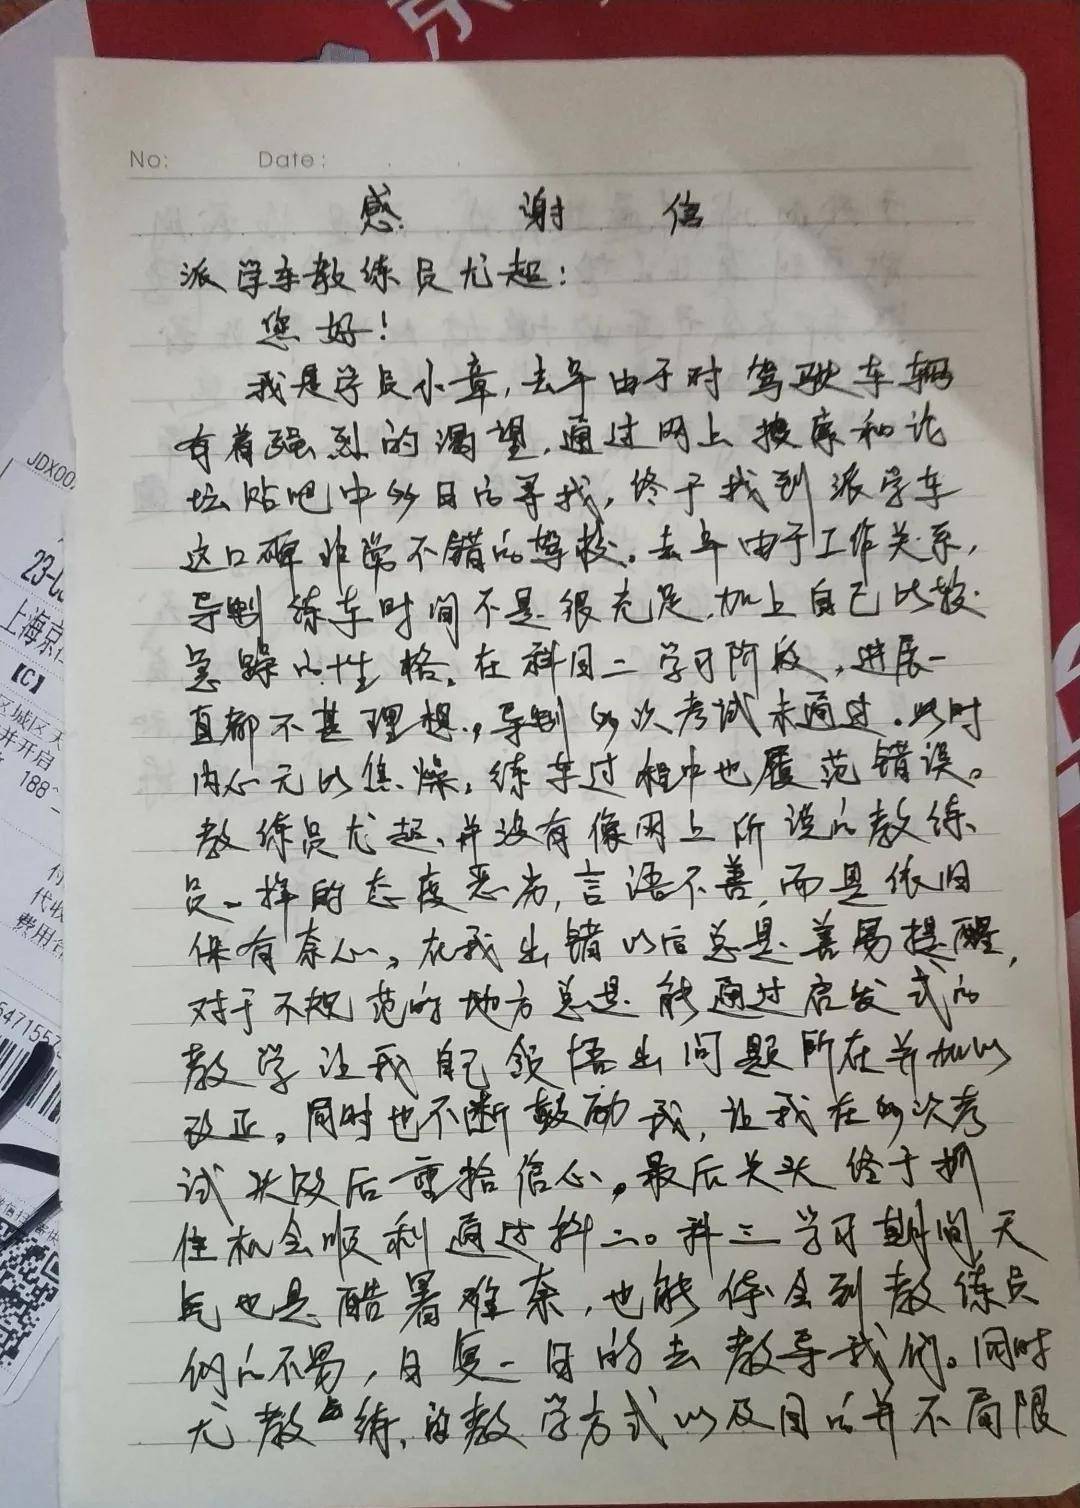 京
No: Date:
感 谢 信
派学车教练员尤起：
您好！
我是学员小章，去年由于对驾驶车辆
有着强烈的渴望，通过网上搜索和论
坛贴吧中多日的寻找，终于找到派学车
这口碑非常不错的驾校。去年由于工作关系，
导制练车时间不是很充足，加上自己比较
急躁的性格。在科目二学习阶段，进展一
直都不甚理想，导制多次考试未通过。此时
内心元以焦燥，练车过程中也履范错误。
教练员尤起，并没有像网上所说的教练
员一样的态度恶劣，言语不善，而是依旧
保有奈心。在我出错以后总是善易提醒，
对于不规范的地方总是能通过启发式的
教学让我自己领悟出问题所在并加以
改正。同时也不断鼓励我，让我在多次考
试失败后重拾信心。最后关头终于抓
住机会顺利通过科二。科三学习期间天
气也是酷署难奈，也能体会到教练员
们的不易，日复一日的去教导我们。同时
尤教练，的教学方式以及目的并不局限
JDX00
23-0
上海京
【C】
区城区天
并开启
188
付
代收
费用合
547155